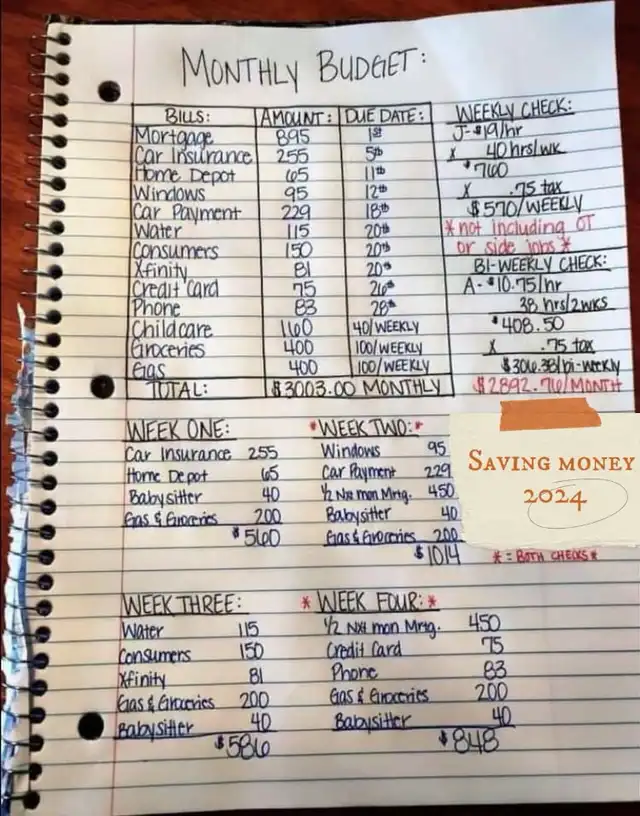 MONTHLY BUDGET:
BILLS: AMOUNT: DUE DATE:
Mortgage 895 1st
Car Insurance 255 5th
Home Depot 65 11th
Windows 95 12th
Car Payment 229 18th
Water 115 20th
Consumers 150 20th
Xfinity 81 20th
Credit Card 75 26th
Phone 83 28th
Childcare 160 40/WEEKLY
Groceries 400 100/WEEKLY
Gas 400 100/WEEKLY
TOTAL: $3003.00 MONTHLY
WEEKLY CHECK:
J-$19/hr
x 40 hrs/wk
$760
x .75 tax
$570/WEEKLY
*not including OT
or side jobs*
BI-WEEKLY CHECK:
A-$10.75/hr
38 hrs/2wks
$408.50
x .75 tax
$306.38/bi-weekly
$2892.76/MONTH
WEEK ONE:
Car Insurance 255
Home Depot 65
Babysitter 40
Gas & Groceries 200
$560
*WEEK TWO:*
Windows 95
Car Payment 229
1/2 Nxt mon Mrtg. 450
Babysitter 40
Gas & Groceries 200
$1014
SAVING MONEY
2024
* = BOTH CHECKS*
WEEK THREE:
Water 115
Consumers 150
Xfinity 81
Gas & Groceries 200
Babysitter 40
$586
* WEEK FOUR:*
1/2 Nxt mon Mrtg. 450
Credit Card 75
Phone 83
Gas & Groceries 200
Babysitter 40
$848